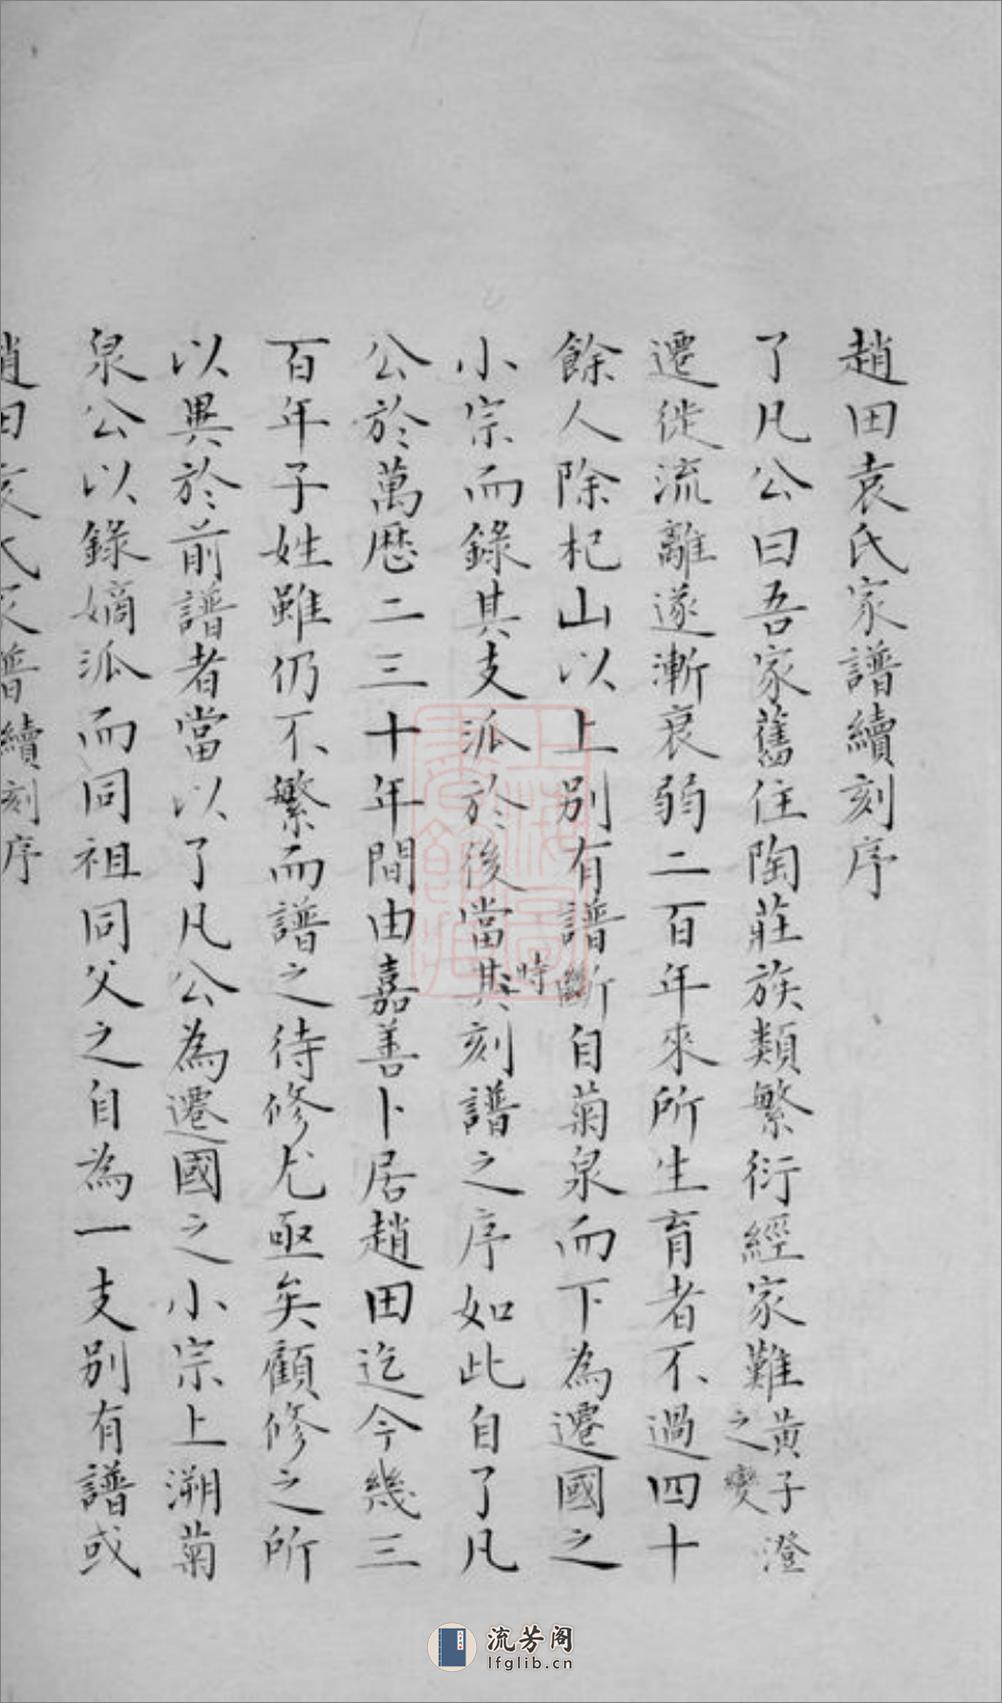 趙田袁氏家譜續刻序
了凡公曰吾家舊住陶莊族類繁衍經家難黃子澄之變
遷徙流離遂漸衰弱二百年來所生育者不過四十
餘人除杞山以上別有譜斷自菊泉而下為遷國之
小宗而錄其支派於後當其時刻譜之序如此自了凡
公於萬厯二三十年間由嘉善卜居趙田迄今幾三
百年子姓雖仍不繁而譜之待修尤亟矣顧修之所
以異於前譜者當以了凡公為遷國之小宗上溯菊
泉公以錄嫡派而同祖同父之自為一支別有譜或
趙田袁氏家譜續刻序
流芳阁
lfglib.cn